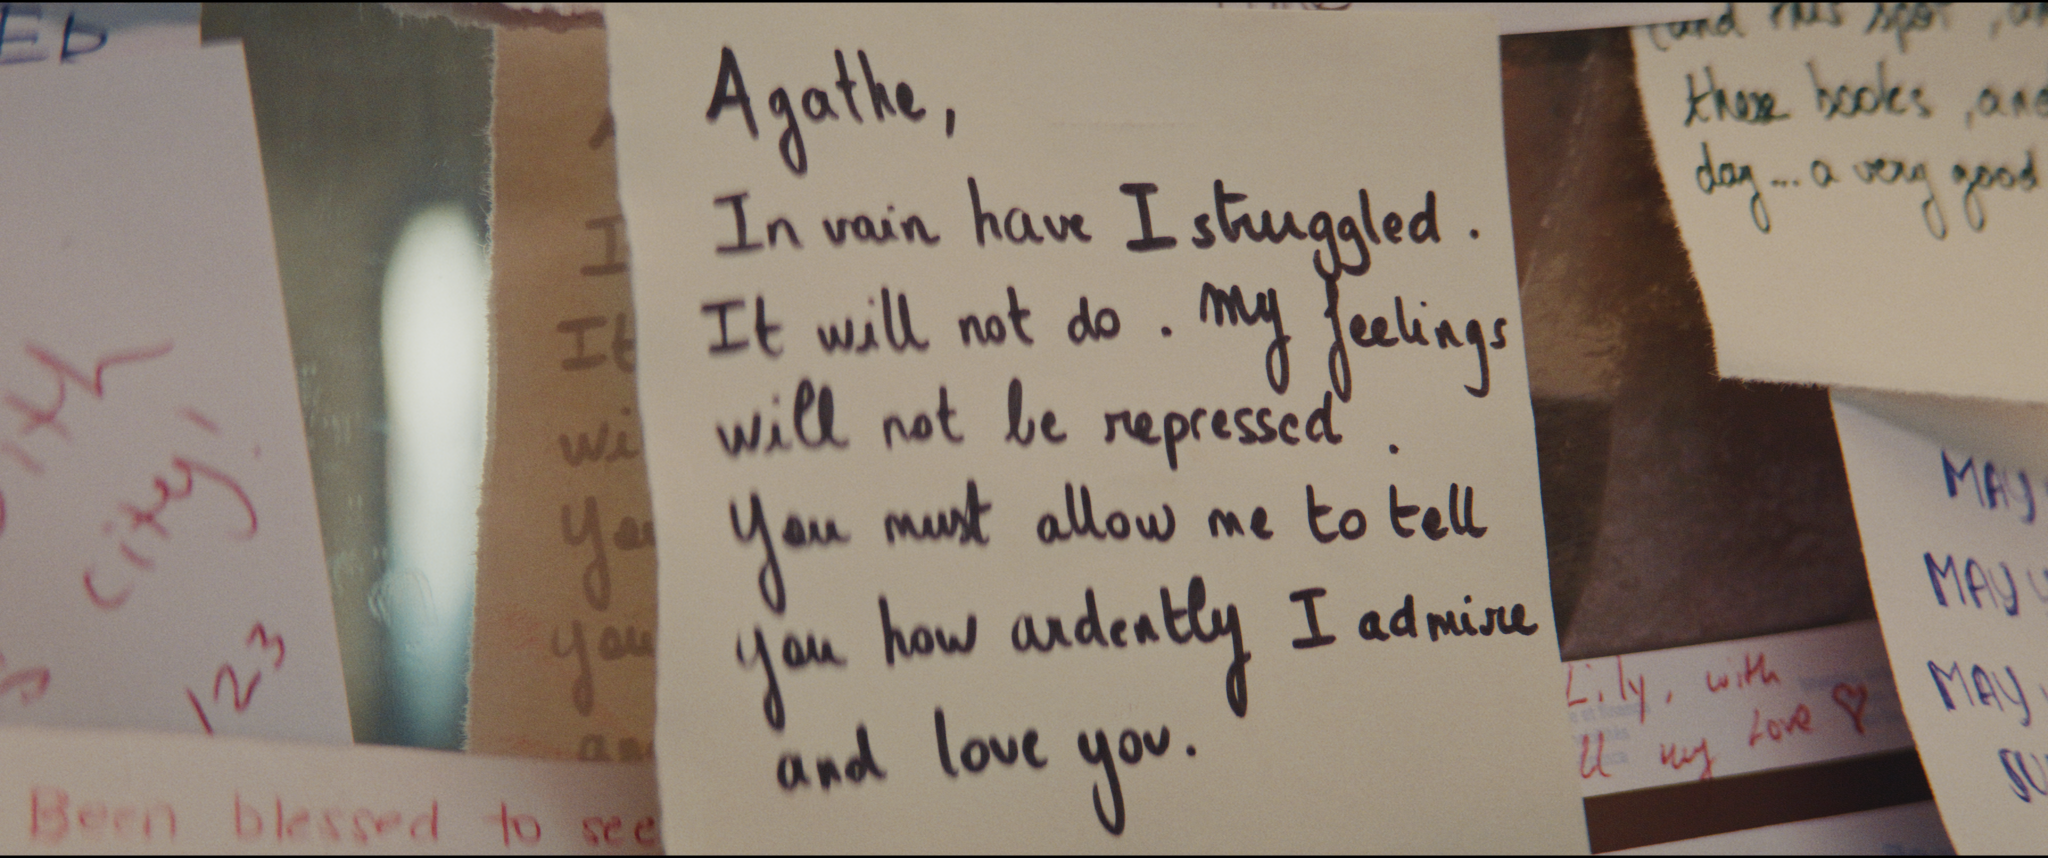 Agathe,
In vain have I struggled.
It will not do. My feelings
will not be repressed.
You must allow me to tell
you how ardently I admire
and love you.
ED
city!
123
Been blessed to see
I
It
wi
You
you
and this spot, an
these books, and
day... a very good
Lily, with
ll my Love ♡
MAY
MAY
MAY
SU